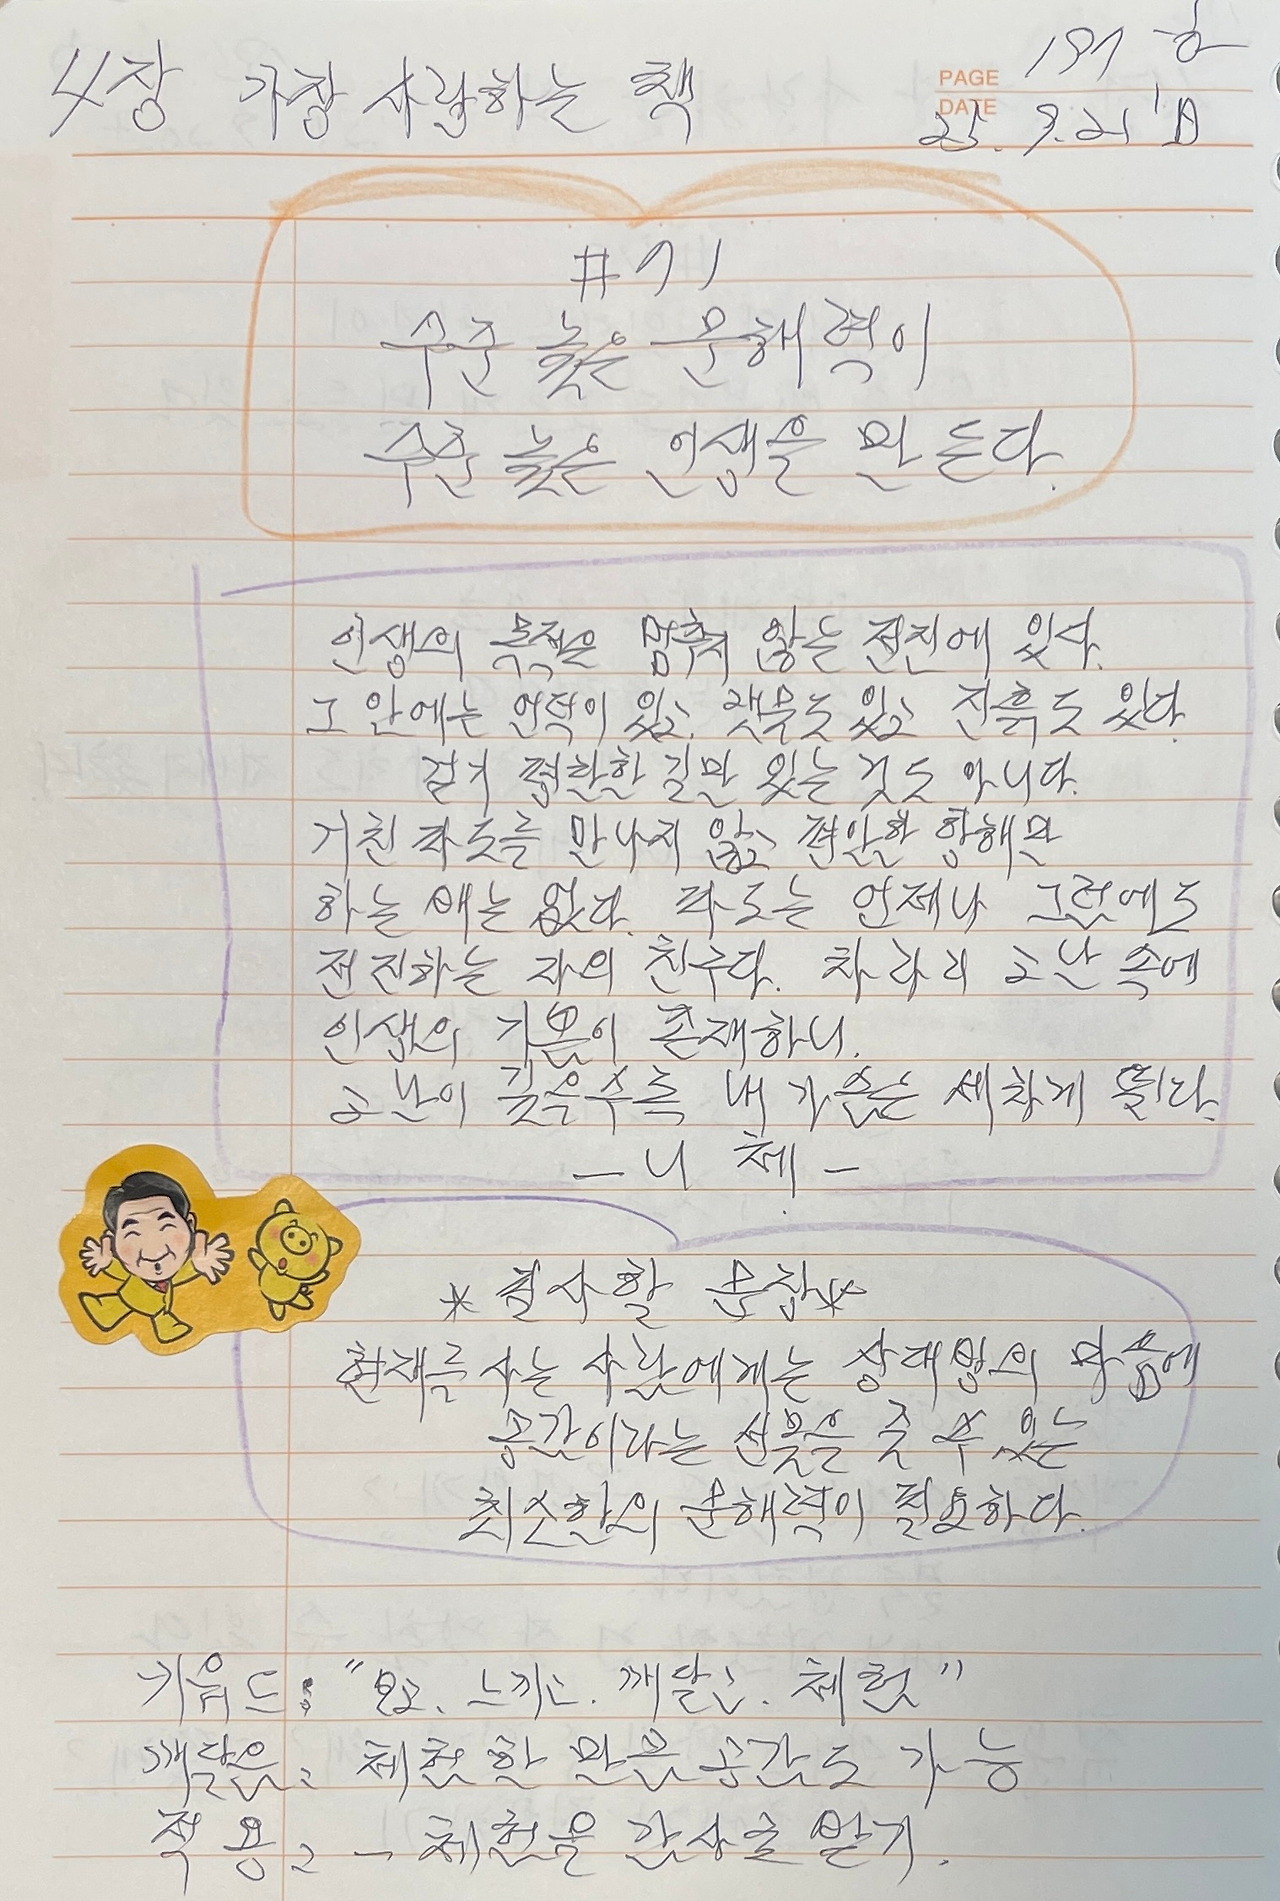 4장 가장 사랑하는 책
PAGE 197 쪽
DATE 25. 9. 21 '日
#71
수준 높은 문해력이
수준 높은 인생을 만든다.
인생의 목적은 멈추지 않는 전진에 있다.
그 안에는 언덕이 있고, 냇물도 있고 진흙도 있다.
걷기 평탄한 길만 있는 것도 아니다.
거친 파도를 만나지 않고 편안한 항해만
하는 배는 없다. 파도는 언제나 그럼에도
전진하는 자의 친구다. 차라리 고난 속에
인생의 기쁨이 존재하니.
고난이 깊을수록 내 가슴은 세차게 뛴다.
- 니체 -
*필사할 문장*
현재를 사는 사람에게는 상대방의 마음에
공간이라는 선물을 줄 수 있는
최소한의 문해력이 필요하다.
키워드: "보고. 느끼고. 깨달고. 체험"
깨달음: 체험한 만큼 공간도 가능
적용: - 체험을 항상 하기.